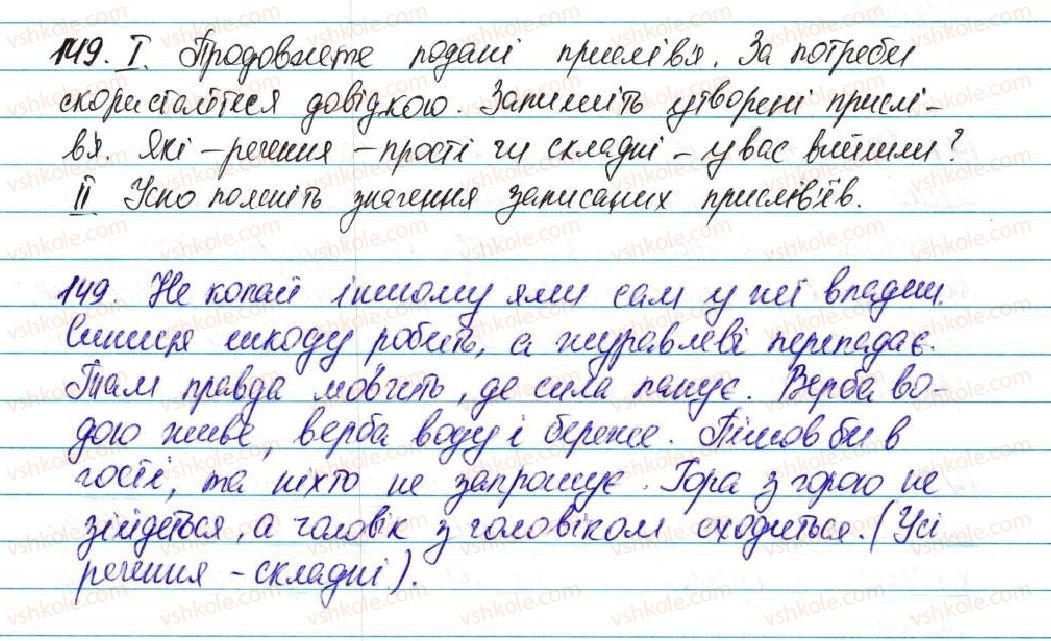 149. I. Продовжете подані прислів'я. За потреби
скористайтеся довідкою. Запишіть утворені прислі-
в'я. Які – речення – прості чи складні – у вас вийшли?
II Усно поясніть значення записаних прислів'їв.
149. Не копай іншому ями сам у неї впадеш.
Синиця шкоду робить, а журавлеві перепадає.
Там правда мовчить, де сила панує. Верба во-
дою живе, верба воду і береже. Пішов би в
гості, та ніхто не запрошує. Гора з горою не
зійдеться, а чоловік з чоловіком сходиться. (Усі
речення – складні).